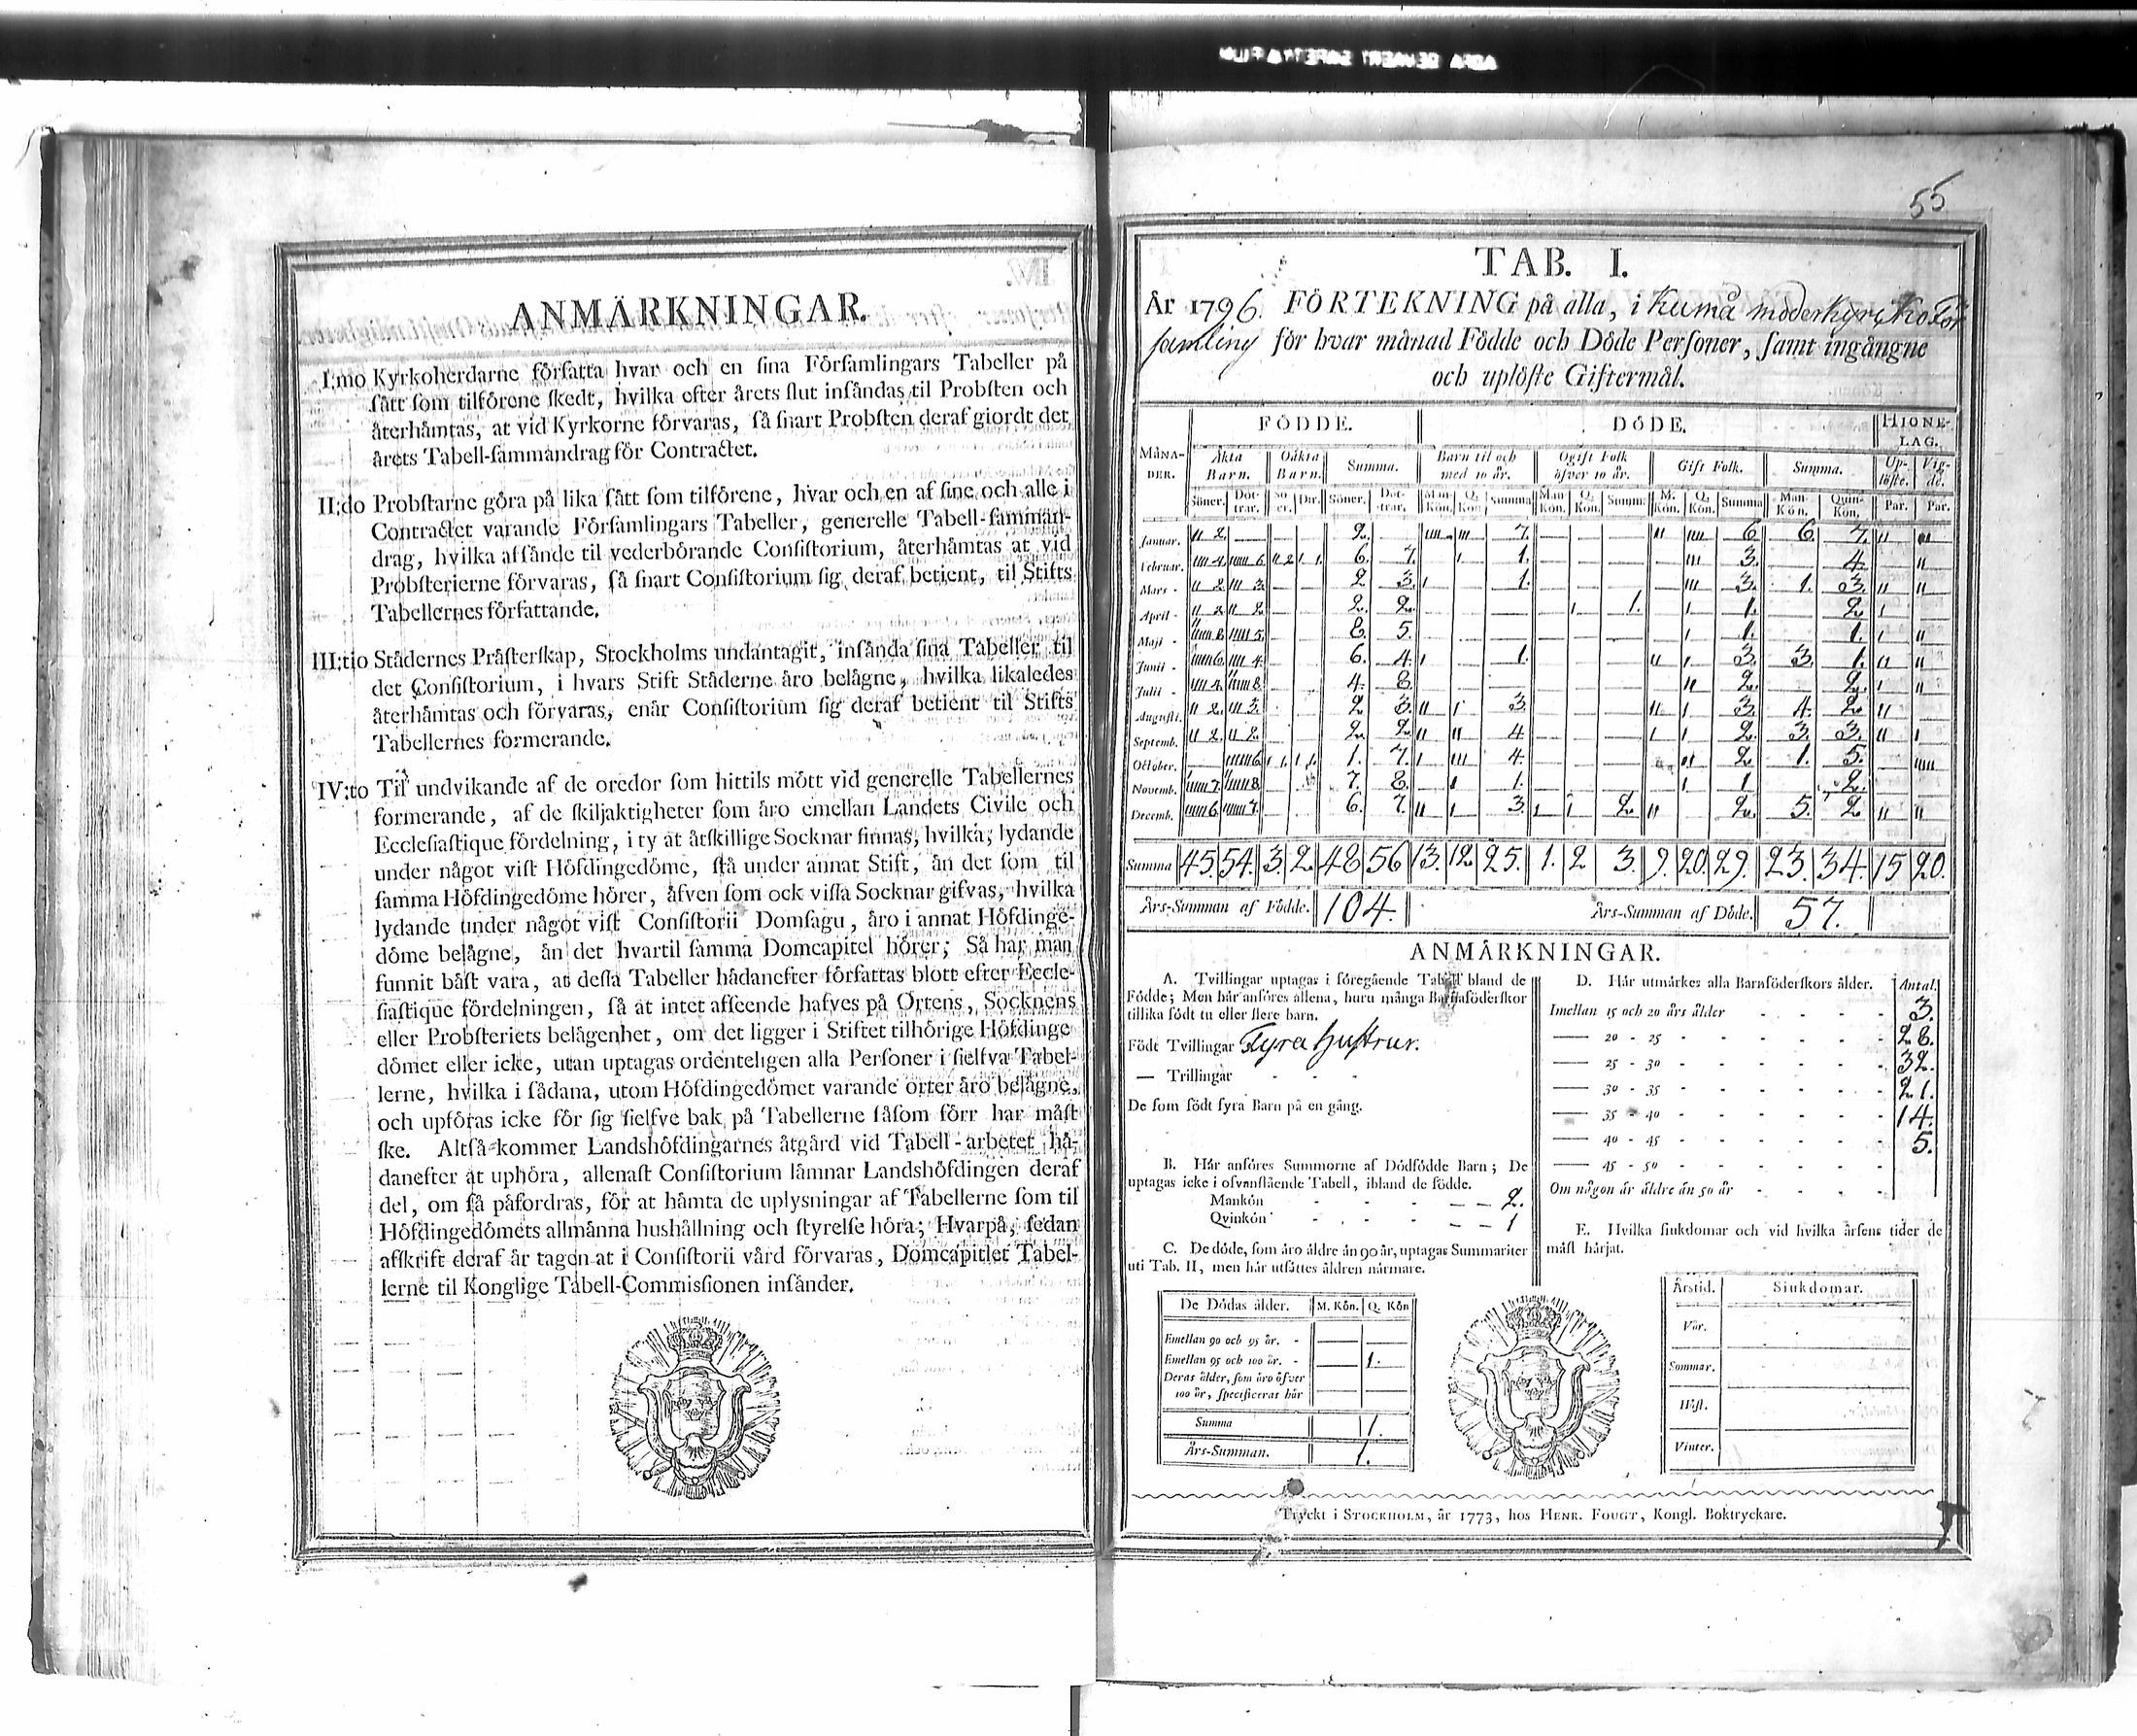 ANMÄRKNINGAR.
I:mo Kyrkoherdarne författa hvar och en sina Församlingars Tabeller på
sått som tilförene skedt, hvilka efter årets slut insåndas til Probsten och
återhåmtas, at vid Kyrkorne förvaras, så snart Probsten deraf giordt det
årets Tabell-sammandrag för Contractet.
II:do Probstarne göra på lika sått som tilförene, hvar och en af sine och alle i
Contractet varande Församlingars Tabeller, generelle Tabell-samman-
drag, hvilka afsånde til vederbörande Consistorium, återhåmtas at vid
Probsterierne förvaras, så snart Consistorium sig deraf betient, til Stifts
Tabellernes författande.
III:tio Stådernes Pråsterskap, Stockholms undantagit, insånda sina Tabeller til
det Consistorium, i hvars Stift Ståderne åro belågne, hvilka likaledes
återhåmtas och förvaras, enår Consistorium sig deraf betient til Stifts
Tabellernes formerande.
IV:to Til undvikande af de oredor som hittils mött vid generelle Tabellernes
formerande, af de skiljaktigheter som åro emellan Landets Civile och
Ecclesiastique fördelning, i ty at åtskillige Socknar finnas, hvilka, lydande
under något vist Höfdingedöme, stå under annat Stift, ån det som til
samma Höfdingedöme hörer, åfven som ock vissa Socknar gifvas, hvilka
lydande under något vist Consistorii Domsagu, åro i annat Höfdinge-
döme belågne, ån det hvartil samma Domcapitel hörer; Så har man
funnit båst vara, at dessa Tabeller hådanefter författas blott efter Eccle-
siastique fördelningen, så at intet afseende hafves på Ortens, Socknens
eller Probsteriets belågenhet, om det ligger i Stiftet tilhörige Höfdinge
dömet eller icke, utan uptagas ordenteligen alla Personer i sielfva Tabel-
lerne, hvilka i sådana, utom Höfdingedömet varande orter åro belågne,
och upföras icke för sig sielfve bak på Tabellerne såsom förr har måst
ske. Altså kommer Landshöfdingarnes åtgård vid Tabell-arbetet hå-
danefter at uphöra, allenast Consistorium låmnar Landshöfdingen deraf
del, om så påfordras, för at håmta de uplysningar af Tabellerne som til
Höfdingedömets allmånna hushållning och styrelse höra; Hvarpå, sedan
afskrift deraf år tagen at i Consistorii vård förvaras, Domcapitlet Tabel-
lerne til Konglige Tabell-Commissionen insånder.
55
TAB. I.
År 1796. FÖRTEKNING på alla, i Kumå moderkyrko För
samling för hvar månad Födde och Döde Personer, samt ingångne
och uplöste Giftermål.
FÖDDE. DÖDE. HIONE-
LAG.
MÅNA-
DER. Äkta
Barn. Oåkta
Barn. Summa. Barn til och
med 10 år. Ogift Folk
öfver 10 år. Gift Folk. Summa. Up-
löste. Vig-
de.
Söner. Döt-
trar. Sö
er. Dtr. Söner. Döt-
trar. Man
Kön. Q.
Kön. Summa Man
Kön. Q.
Kön. Summ: M.
Kön. Q.
Kön. Summa Man-
Kön. Quin-
Kön. Par. Par.
Januar. 2. 2. 7. 6 6. 7.
Februar. 4. 6. 2 1. 6. 7. 1. 3. 4.
Mars - 2 3. 2 3. 1. 3. 1. 3.
April - 2 2. 2. 2. 1. 1. 2.
Maji - 8 5. 8 5. 1. 1.
Junii - 6. 4. 6. 4. 1. 3. 3. 1.
Julii - 4 8. 4. 8 2. 2.
Augusti. 2. 3. 2 3. 3. 3. 4. 2
Septemb. 2. 2. 2. 2. 4 2. 3. 3.
October. 6 1. 1. 1. 7. 4. 2 1. 5.
Novemb. 7. 8. 7. 8. 1. 1 2.
Decemb. 6 7. 6. 7. 3. 2. 2. 5. 2
Summa 45. 54. 3. 2. 48 56 13. 12. 25. 1. 2 3. 9. 20. 29. 23. 34. 15 20.
Års-Summan af Födde. 104. Års-Summan af Döde. 57.
ANMÄRKNINGAR.
A. Tvillingar uptagas i föregående Tabell bland de
Födde; Men hår anföres allena, huru många Barnaföderskor
tillika födt tu eller flere barn.
Födt Tvillingar Fyra hustrur.
— Trillingar - - -
De som födt fyra Barn på en gång.
B. Hår anföres Summorne af Dödfödde Barn; De
uptagas icke i ofvanstående Tabell, ibland de födde.
Mankön - - - 2.
Qvinkön - - - 1
C. De döde, som åro åldre ån 90 år, uptagas Summariter
uti Tab. II, men hår utsättes åldren nårmare.
De Dödas ålder. M. Kön. Q. Kön
Emellan 90 och 95 år. -
Emellan 95 och 100 år. - 1.
Deras ålder, som åro öfver
100 år, specificeras hår
Summa 1.
Års-Summan. 1.
D. Hår utmårkes alla Barnföderskors ålder. Antal.
Imellan 15 och 20 års ålder - - - - 3.
— 20 - 25 - - - - 28.
— 25 - 30 - - - - 32.
— 30 - 35 - - - - 21.
— 35 - 40 - - - - 14.
— 40 - 45 - - - - 5.
— 45 - 50 - - - -
Om någon år åldre ån 50 år - - - -
E. Hvilka siukdomar och vid hvilka årsens tider de
måst hårjat.
Årstid. Siukdomar.
Vår.
Sommar.
Höst.
Vinter.
Tryckt i STOCKHOLM, år 1773, hos HENR. FOUGT, Kongl. Boktryckare.